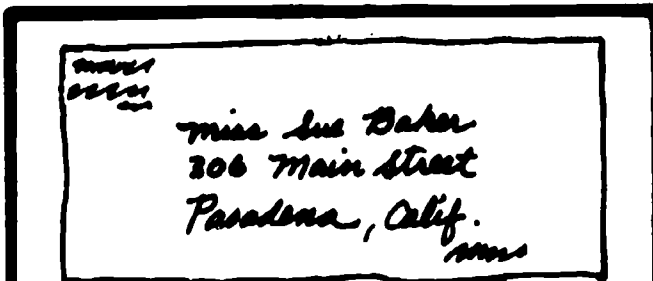 Miss Sue Baker
306 Main Street
Pasadena, Calif.